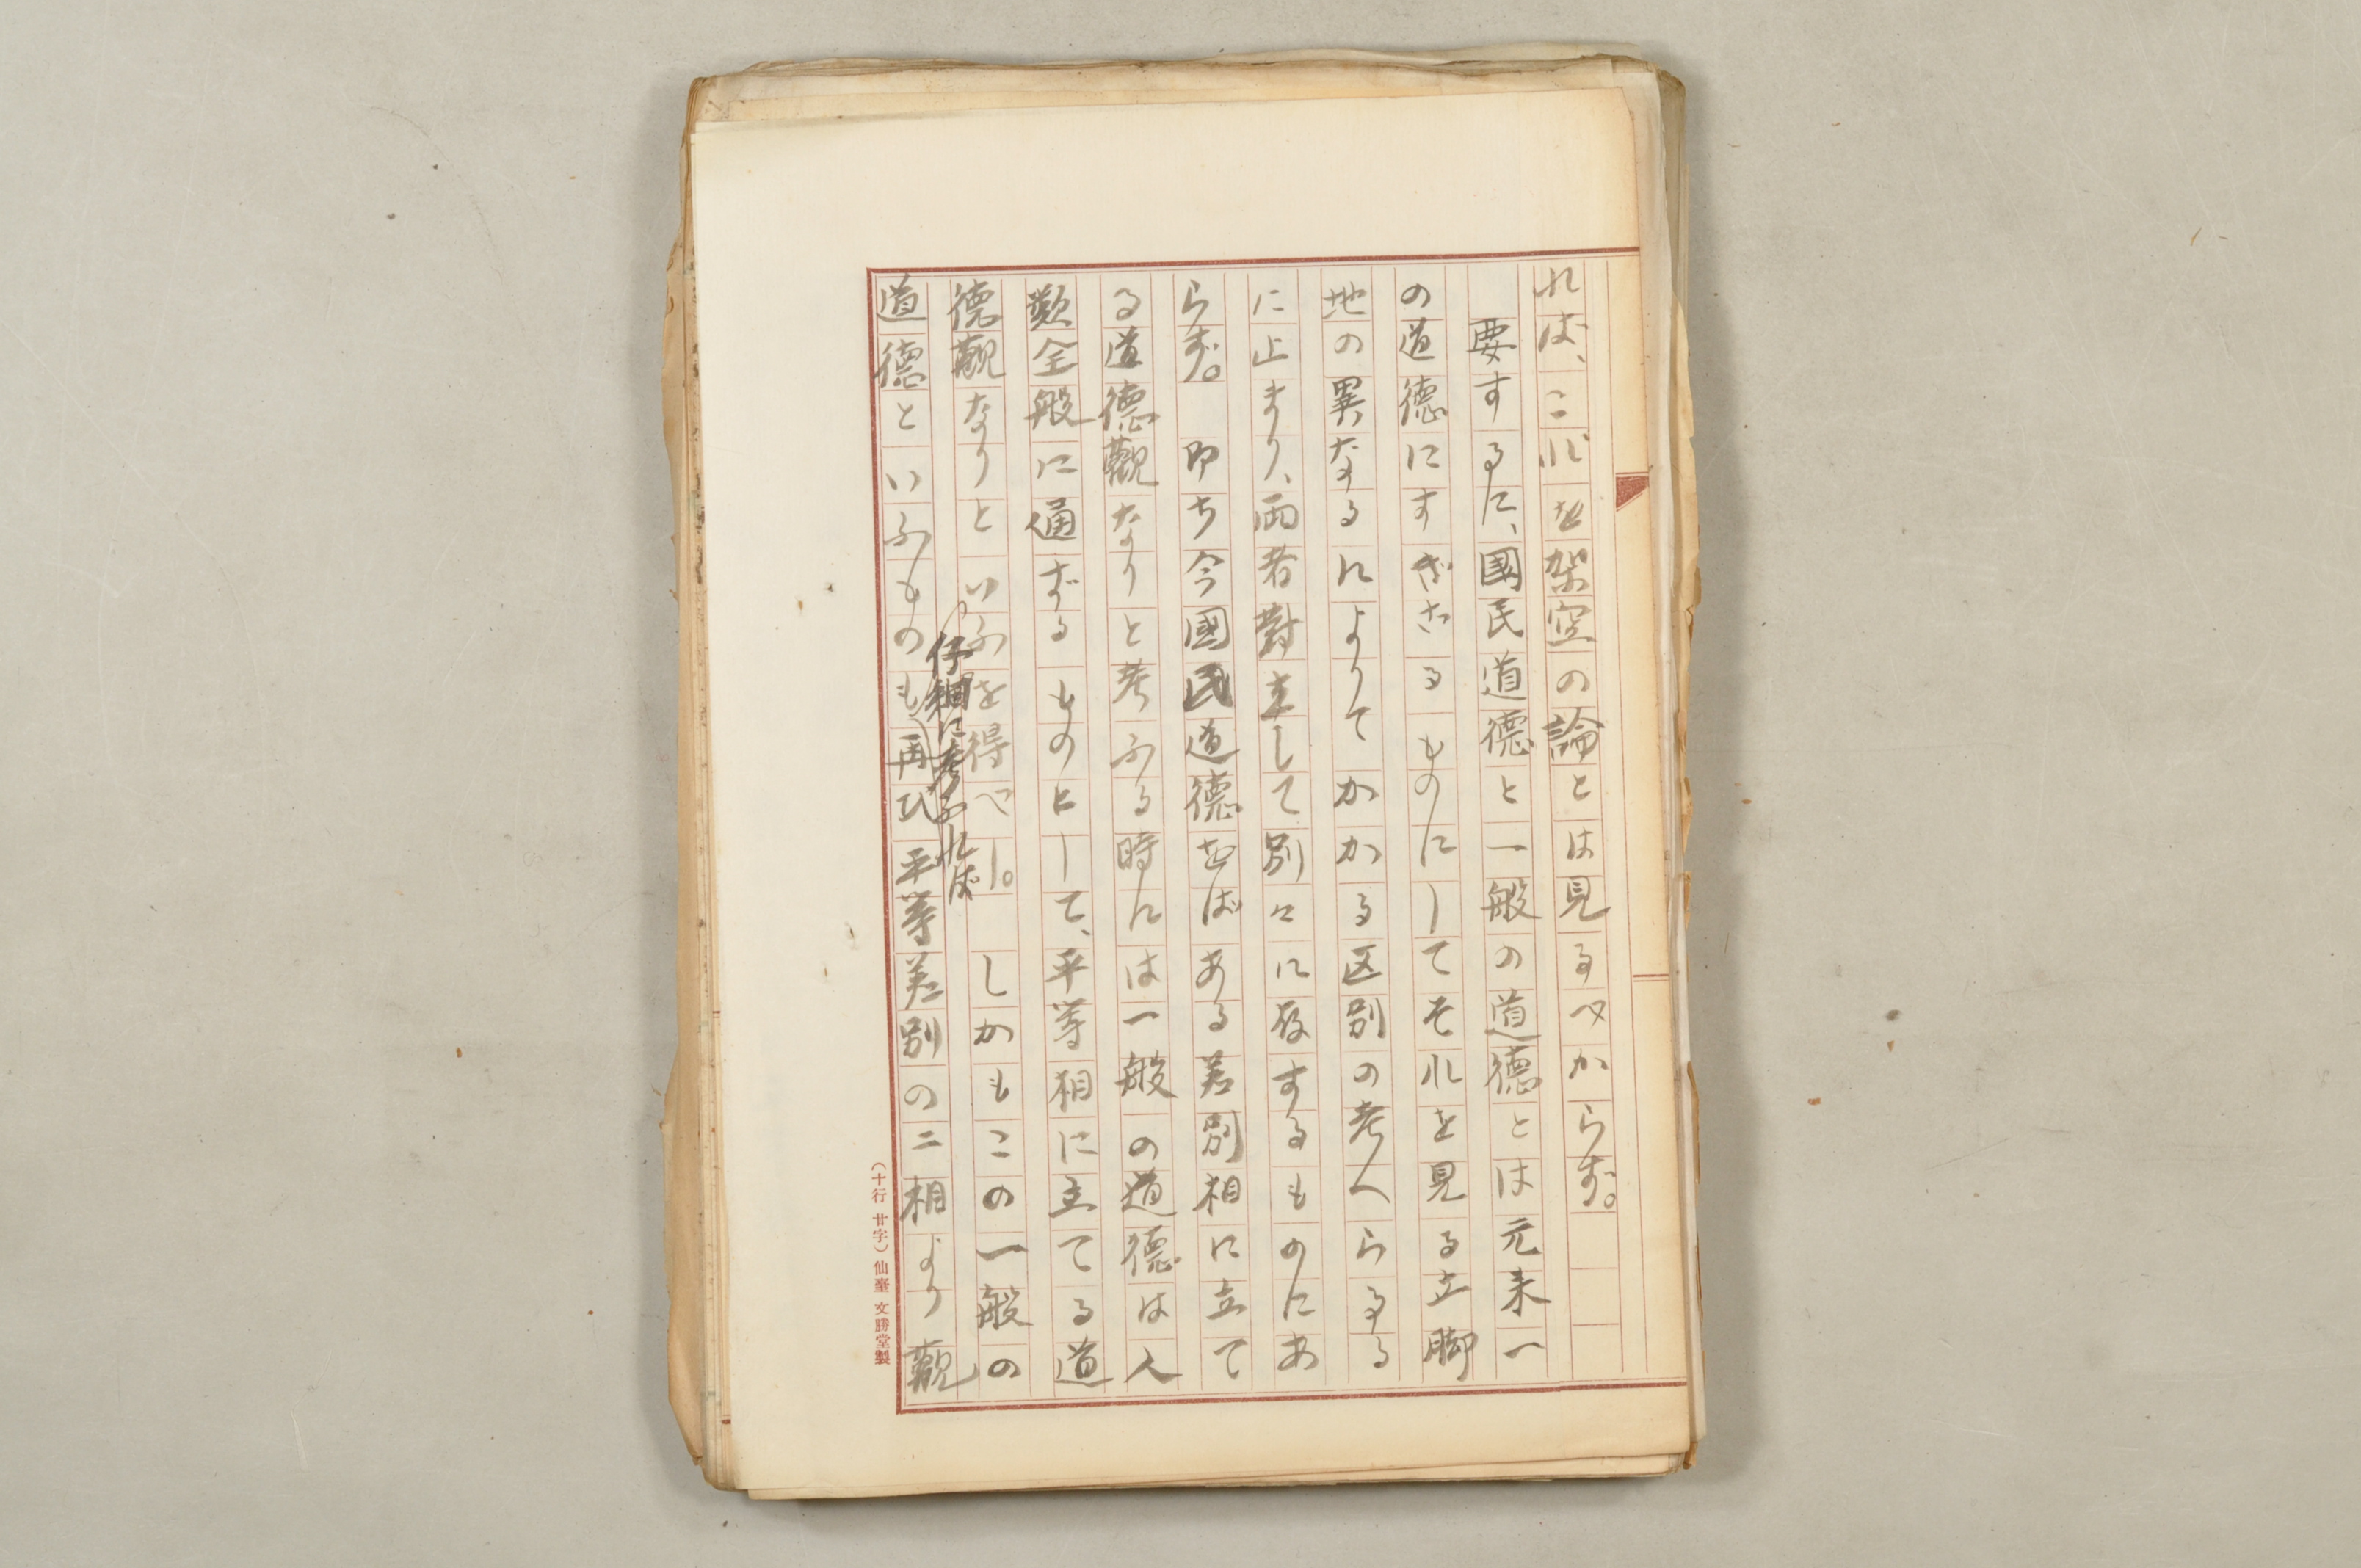 れば、これを架空の論とは見るべからず。
要するに、國民道德と一般の道德とは元来一
の道德にすぎざるものにしてそれを見る立脚
地の異なるによりてかかる区別の考へらるる
に止まり、両者對立して別々に存するものにあ
らず。 即ち今國民道德をばある差別相に立て
る道德觀なりと考ふる時には一般の道德は人
類全般に通ずるものとして、平等相に立てる道
德觀なりといふを得べし。 しかもこの一般の
仔細に考ふれば
道德といふものも再び平等差別の二相より觀
(十行廿字)仙臺文勝堂製